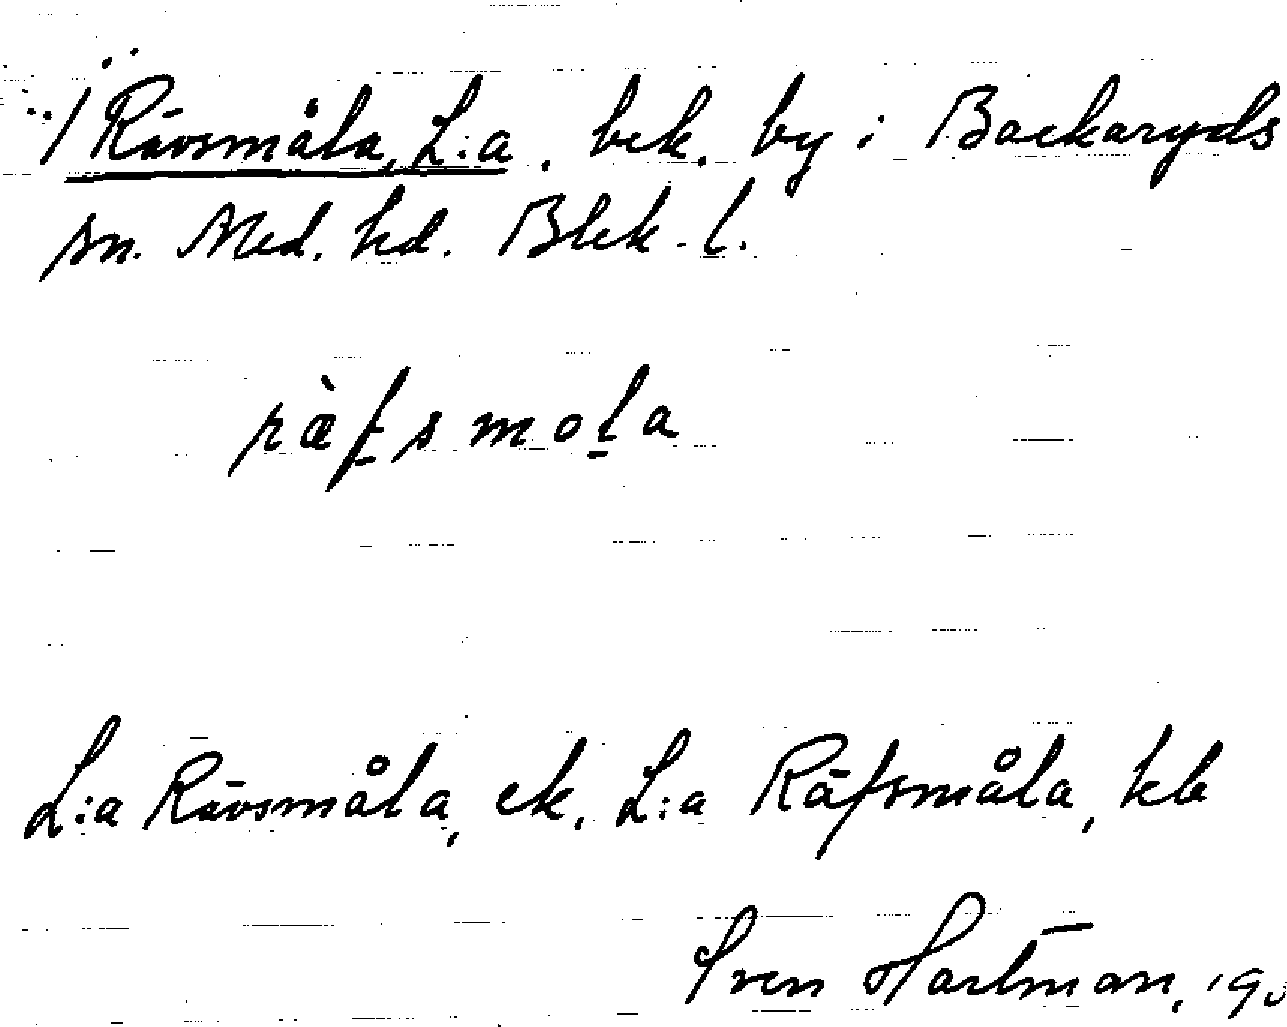 1 Rävsmåla, L:a. bek. by i Backaryds
sn. Med. hd. Blek. l.
ràfsmola
L:a Rävsmåla, ek. L:a Räfsmåla, kb
Sven Hartman,